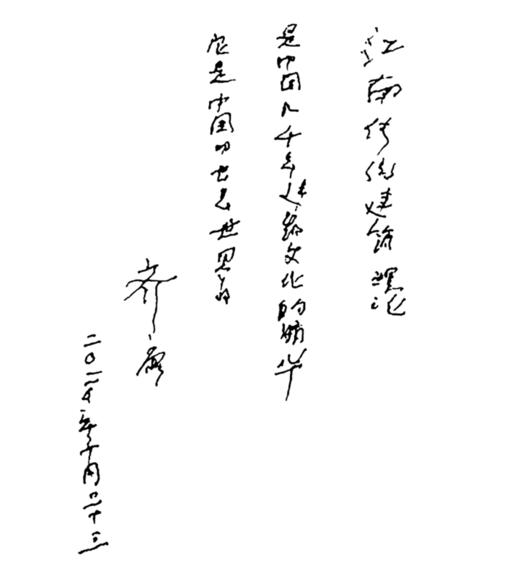 江南传统建筑理论
是中国几千年建筑文化的精华
它是中国的也是世界的
齐康
二〇一五年十月二十三